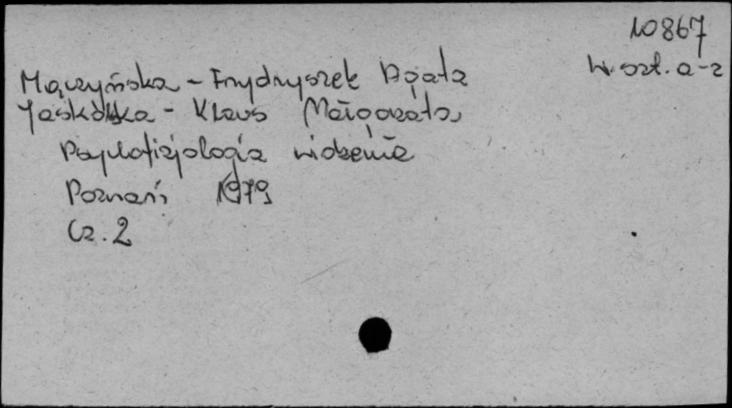 10867
W. szt. a-z
Mączyńska - Frydryszek Agata
Jaskólska - Klaus Małgorzata
Psychofizjologia widzenia
Poznań 1979
Cz. 2